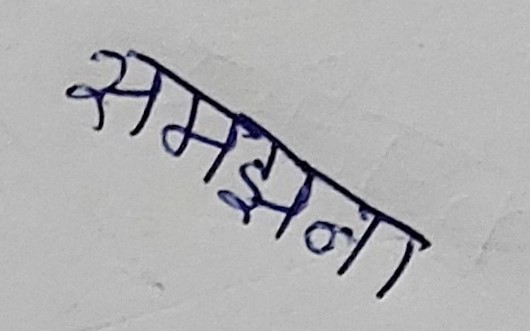 समझना